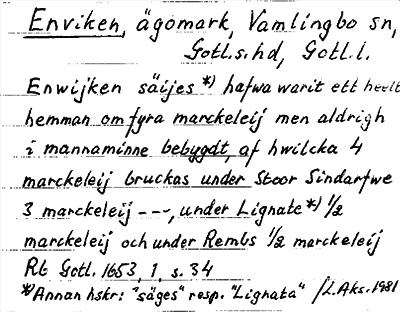 Enviken, ägomark, Vamlingbo sn,
Gotl.s.hd, Gotl.l.
Enwijken säijes *) hafwa warit ett heelt
hemman om fyra marckeleij men aldrigh
i mannaminne bebygdt, af hwilcka 4
marckeleij bruckas under Stoor Sindarfwe
3 marckeleij ---, under Lignate *) 1/2
marckeleij och under Rembs 1/2 marckeleij
Rt Gotl. 1653, 1, s. 34
*) Annan hskr: "säges" resp. "Lignata" /L.Aks. 1981